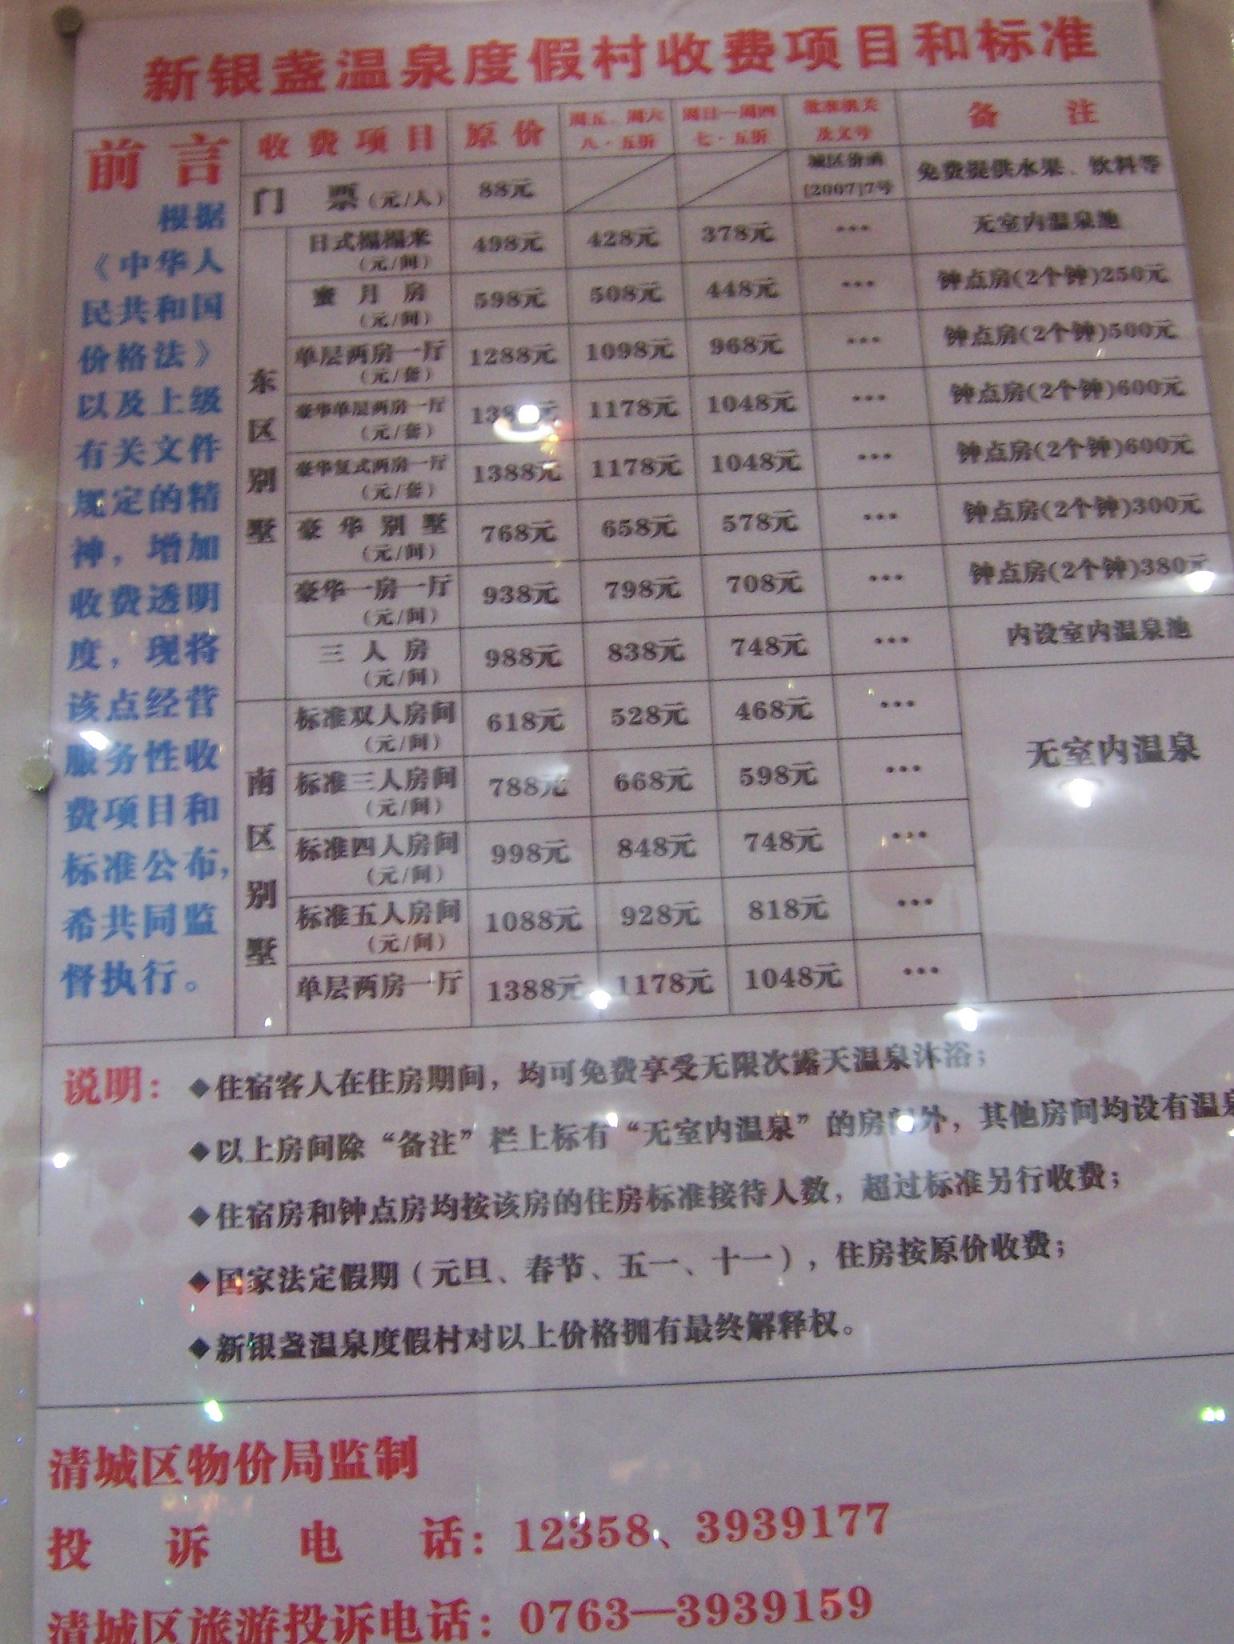 新银盏温泉度假村收费项目和标准
前言
根据
《中华人
民共和国
价格法》
以及上级
有关文件
规定的精
神，增加
收费透明
度，现将
该点经营
服务性收
费项目和
标准公布，
希共同监
督执行。
收费项目 原价 周五、周六 八·五折 周日一周四 七·五折 批准机关及文号 备注
门票(元/人) 88元 城区价函[2007]7号 免费提供水果、饮料等
东区别墅
日式榻榻米(元/间) 498元 428元 378元 ··· 无室内温泉池
蜜月房(元/间) 598元 508元 448元 ··· 钟点房(2个钟)250元
单层两房一厅(元/套) 1288元 1098元 968元 ··· 钟点房(2个钟)500元
豪华单层两房一厅(元/套) 1178元 1048元 ··· 钟点房(2个钟)600元
豪华复式两房一厅(元/套) 1388元 1178元 1048元 ··· 钟点房(2个钟)600元
豪华别墅(元/间) 768元 658元 578元 ··· 钟点房(2个钟)300元
豪华一房一厅(元/间) 938元 798元 708元 ··· 钟点房(2个钟)380元
三人房(元/间) 988元 838元 748元 ··· 内设室内温泉池
南区别墅
标准双人房间(元/间) 618元 528元 468元 ··· 无室内温泉
标准三人房间(元/间) 788元 668元 598元 ···
标准四人房间(元/间) 998元 848元 748元 ···
标准五人房间(元/间) 1088元 928元 818元 ···
单层两房一厅 1388元 1178元 1048元 ···
说明：◆住宿客人在住房期间，均可免费享受无限次露天温泉沐浴；
◆以上房间除“备注”栏上标有“无室内温泉”的房间外，其他房间均设有温泉
◆住宿房和钟点房均按该房的住房标准接待人数，超过标准另行收费；
◆国家法定假期（元旦、春节、五一、十一），住房按原价收费；
◆新银盏温泉度假村对以上价格拥有最终解释权。
清城区物价局监制
投诉电话：12358、3939177
清城区旅游投诉电话：0763—3939159